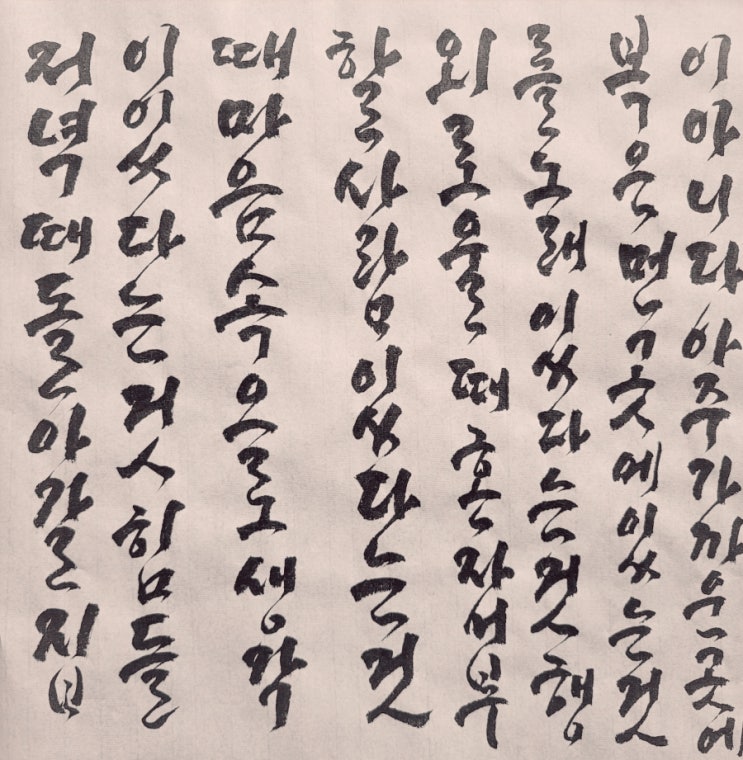 저녁때돌아갈집
이있다는것힘들
때마음속으로생각
할사람있다는것
외로울때혼자서부
를노래있다는것행
복은먼곳에있는것
이아니다아주가까운곳에